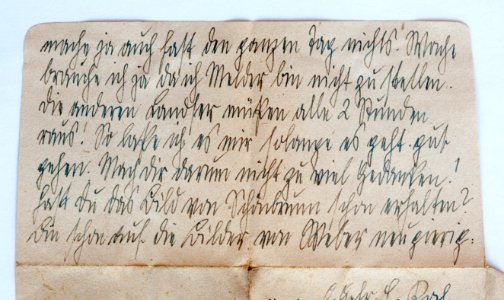 mache ja auch fast den ganzen Tag nichts. Wache
brauche ich ja da ich Melder bin nicht zu stellen.
Die anderen Landser müßen alle 2 Stunden
raus! So laße ich es mir solange es geht gut
gehen. Mach dir darum nicht zu viel Gedanken!
Hast Du das Bild von Schönbrunn schon erhalten?
Bin schon auf die Bilder von Weber neugierig.